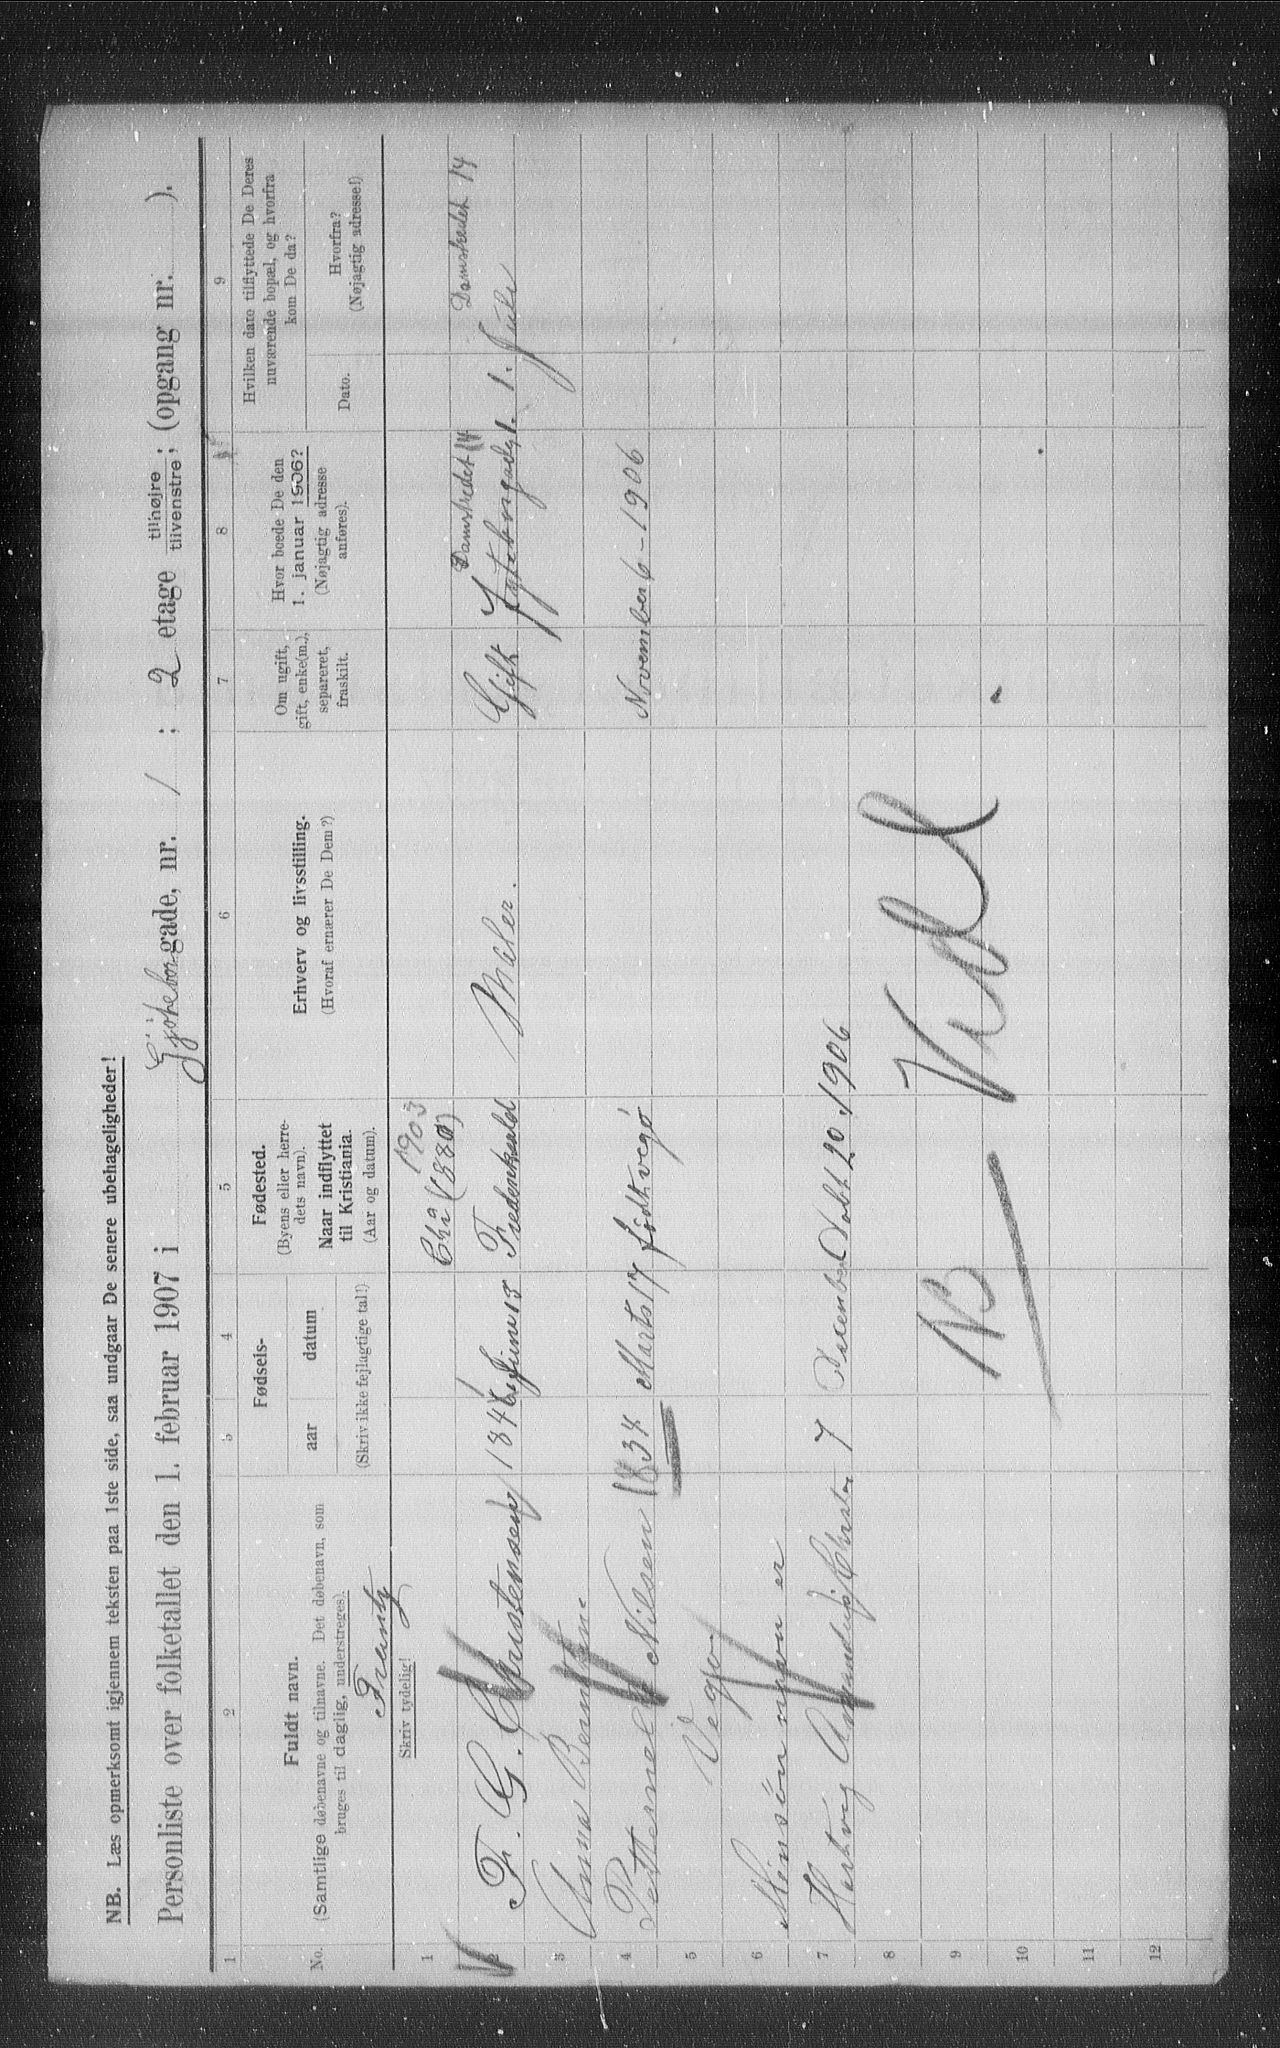 NB. Læs opmerksomt igjennem teksten paa 1ste side, saa undgaar De senere ubehageligheder!
Personliste over folketallet den 1. februar 1907 i Gjøteborgade, nr. / ; 2 etage tilhøjre / tilvenstre; (opgang nr. ).
1 2 3 4 5 6 7 8 9
No.
Fuldt navn.
(Samtlige døbenavne og tilnavne. Det døbenavn, som
bruges til daglig, understreges).
Skriv tydelig!
Fødsels-
aar datum
(Skriv ikke fejlagtige tal!)
Fødested.
(Byens eller herre-
dets navn).
Naar indflyttet
til Kristiania.
(Aar og datum).
Erhverv og livsstilling.
(Hvoraf ernærer De Dem?)
Om ugift,
gift, enke(m.),
separeret,
fraskilt.
Hvor boede De den
1. januar 1906?
(Nøjagtig adresse
anføres).
Hvilken dato tilflyttede De Deres
nuværende bopæl, og hvorfra
kom De da?
Dato.
Hvorfra?
(Nøjagtig adresse!)
Frantz
1903
1 Chra (1880) Damstredet 14 Damstredet 14
2 F. G. Christensen 1846 Juni 15 Fredrikshald Maler. Gift 1.
3 Anna
4 Nilsen 1834 Marts 17 født vegø November 6 - 1906
5 Vegø
6 Min sön navn er
7 Hartvig 7 December Döbt 20 1906
8
9 NB
10
11
12